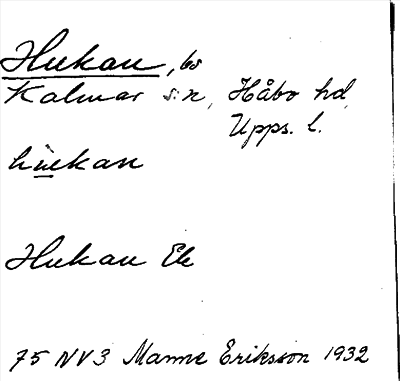 Hukan, bs
Kalmar s:n, Håbo hd,
Upps. l.
hu̇kan
Hukan Ek
75 NV3 Manne Eriksson 1932